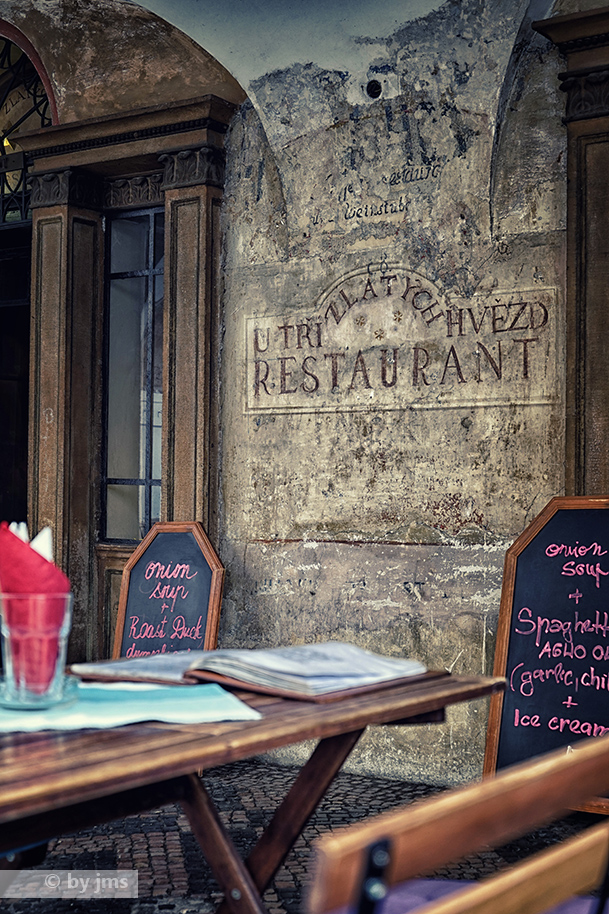 Weinstube
ZLATÝCH
U TŘÍ HVĚZD
RESTAURANT
onion
soup
+
Roast Duck
dumplings
onion
soup
+
Spaghetti
AGLIO OL
(garlic, chi
+
Ice cream
© by jms